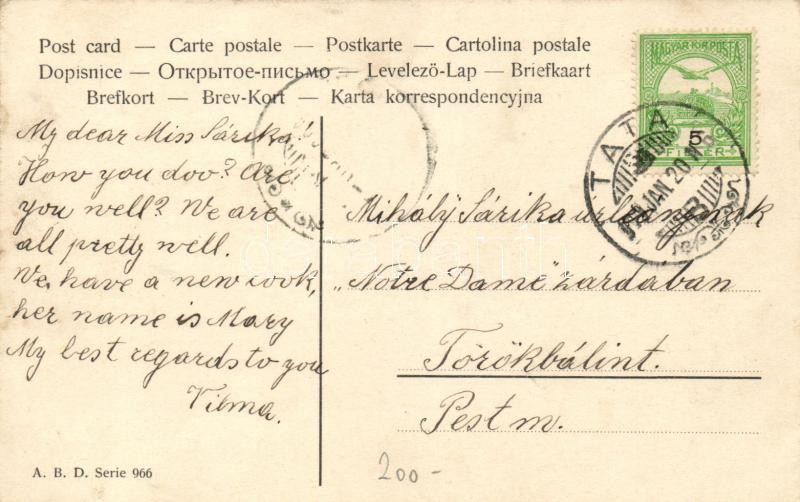 Post card — Carte postale — Postkarte — Cartolina postale
Dopisnice — Открытое-письмо — Levelezö-Lap — Briefkaart
Brefkort — Brev-Kort — Karta korrespondencyjna
MAGYAR KIR. POSTA
5
FILLER
TATA
JAN. 20
My dear Miss Sárika!
How you doo? Are
you well? We are
all pretty well.
We have a new cook,
her name is Mary
My best regards to you
Vilma.
Mihály Sárika urleánynak
„Notre Dame" zárdában
Törökbálint.
Pest m.
A. B. D. Serie 966
200-